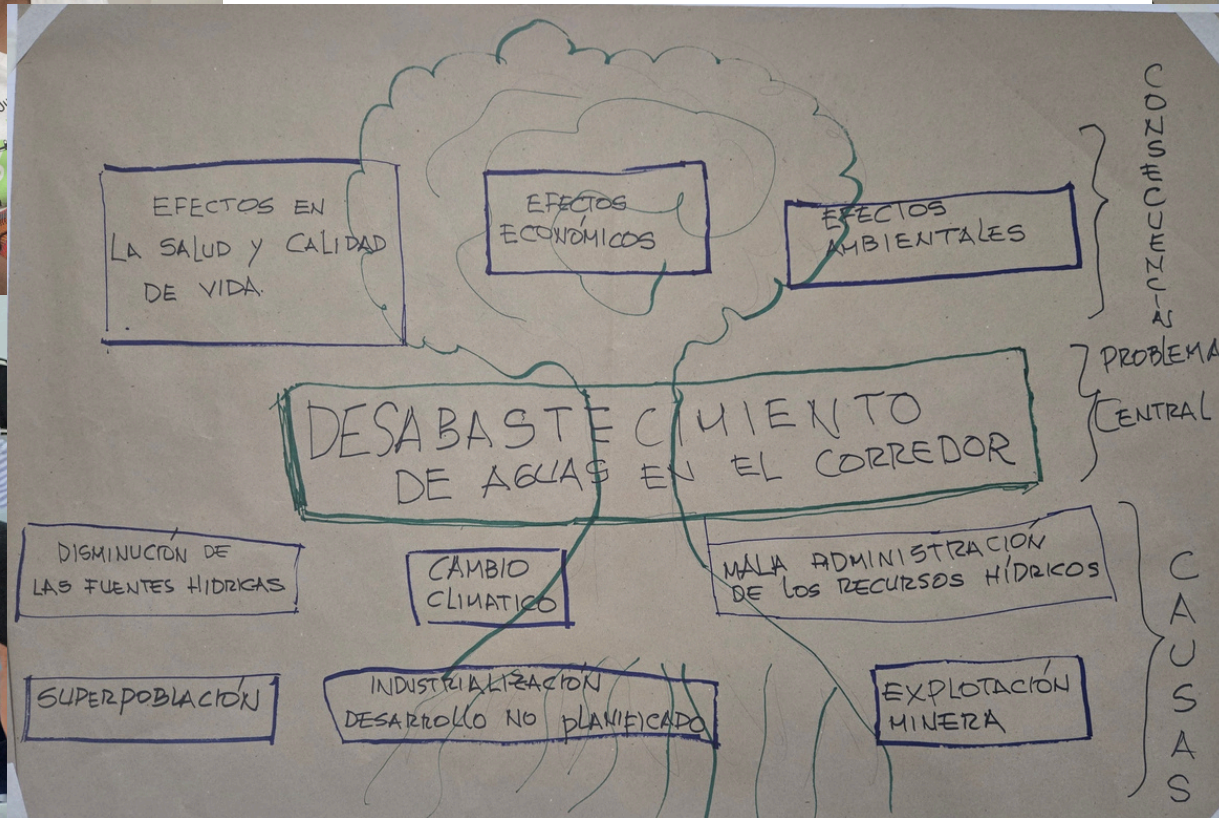 EFECTOS EN
LA SALUD Y CALIDAD
DE VIDA.
EFECTOS
ECONÓMICOS
EFECTOS
AMBIENTALES
CONSECUENCIAS
DESABASTECIMIENTO
DE AGUAS EN EL CORREDOR
PROBLEMA
CENTRAL
DISMINUCIÓN DE
LAS FUENTES HIDRICAS
CAMBIO
CLIMATICO
MALA ADMINISTRACIÓN
DE LOS RECURSOS HÍDRICOS
SUPERPOBLACIÓN
INDUSTRIALIZACIÓN
DESARROLLO NO PLANIFICADO
EXPLOTACIÓN
MINERA
CAUSAS